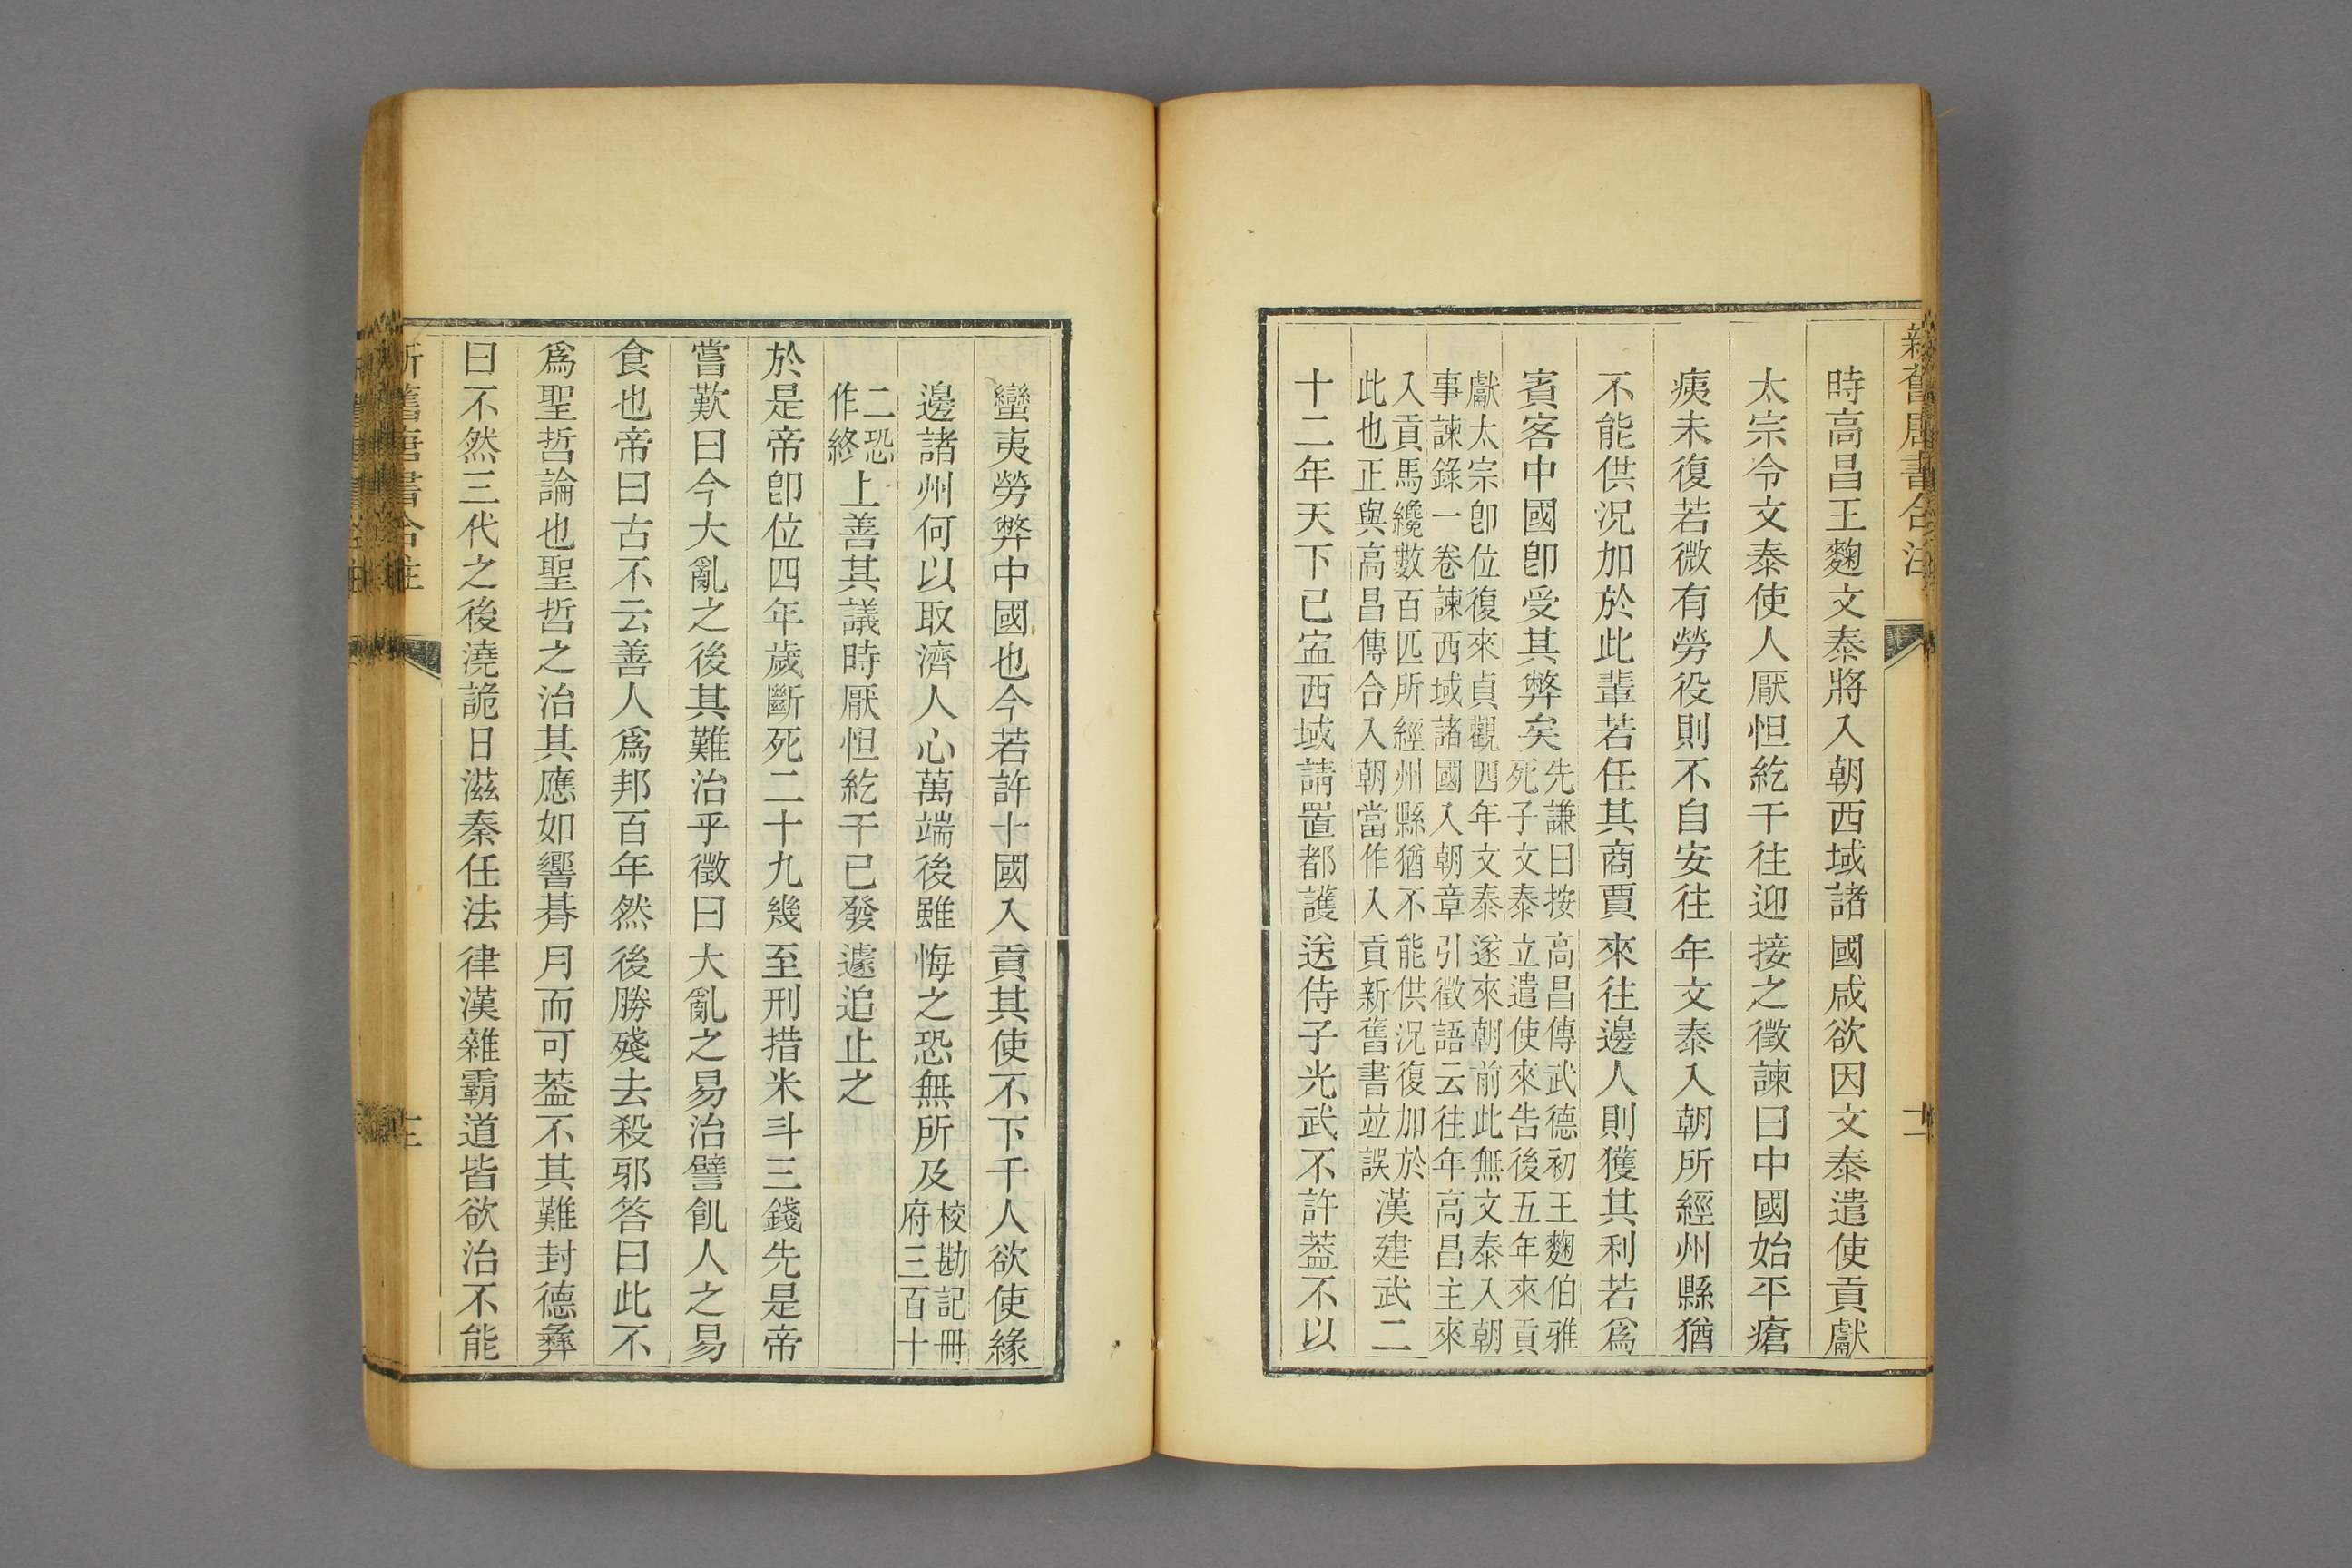 時高昌王麴文泰將入朝西域諸國咸欲因文泰遣使貢獻
太宗令文泰使人厭怛紇干往迎接之徵諫曰中國始平瘡
痍未復若微有勞役則不自安往年文泰入朝所經州縣猶
不能供況加於此輩若任其商賈來往邊人則獲其利若爲
賓客中國卽受其弊矣
先謙曰按高昌傳武德初王麴伯雅
死子文泰立遣使來告後五年來貢
獻太宗卽位復來貞觀四年文泰遂來朝前此無文泰入朝
事諫錄一卷諫西域諸國入朝章引徵語云往年高昌主來
入貢馬纔數百匹所經州縣猶不能供況復加於
此也正與高昌傳合入朝當作入貢新舊書竝誤
漢建武二
十二年天下已寍西域請置都護送侍子光武不許葢不以
蠻夷勞弊中國也今若許十國入貢其使不下千人欲使緣
邊諸州何以取濟人心萬端後雖悔之恐無所及
校勘記冊
府三百十
二恐
作終
上善其議時厭怛紇干已發遽追止之
於是帝卽位四年歲斷死二十九幾至刑措米斗三錢先是帝
嘗歎曰今大亂之後其難治乎徵曰大亂之易治譬飢人之易
食也帝曰古不云善人爲邦百年然後勝殘去殺邪答曰此不
爲聖哲論也聖哲之治其應如響朞月而可葢不其難封德彝
曰不然三代之後澆詭日滋秦任法律漢雜霸道皆欲治不能